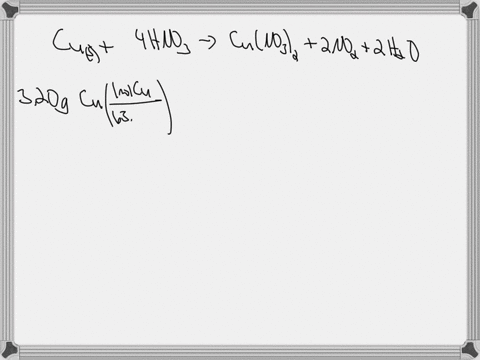 Cu(s) + 4HNO3 → Cu(NO3)2 + 2NO2 + 2H2O
3.20g Cu (1mol Cu / 63.)